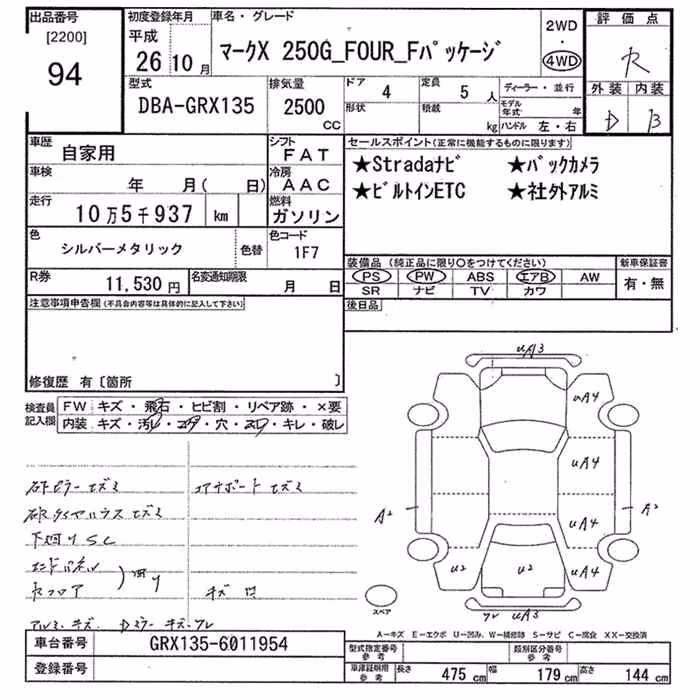 出品番号
[2200]
94
初度登録年月
平成
26年10月
車名・グレード
マークX 250G_FOUR_Fパッケージ
2WD
・
4WD
評価点
R
外装 内装
D B
型式
DBA-GRX135
排気量
2500
CC
ドア 4
形状
定員 5 人
積載 kg
ディーラー・並行
モデル年式 年
ハンドル 左・右
車歴
自家用
シフト
FAT
車検 年 月( 日)
冷房
AAC
走行 10万5千937 km
燃料
ガソリン
色
シルバーメタリック
色替
色コード
1F7
R券
11,530円
名変通知期限
月 日
セールスポイント(正常に機能するものに限ります)
★Stradaナビ ★バックカメラ
★ビルトインETC ★社外アルミ
装備品 (純正品に限り○をつけてください)
PS PW ABS エアB AW
SR ナビ TV カワ
新車保証書
有・無
後日品
注意事項申告欄(不具合内容等は具体的に記入して下さい)
修復歴 有〔箇所 〕
検査員記入欄
FW キズ・飛石・ヒビ割・リペア跡・×要
内装 キズ・汚レ・コゲ・穴・スレ・キレ・破レ
コアサポートエズミ
下廻りSC
エンドパネル
キズ 凹
アルミキズ
uA3
uA4
uA4
uA4
uA4
A2
A2
U2
U2
uA3
スペア
A―キズ E―エクボ U―凹み W―補修跡 S―サビ C―腐食 XX―交換済
車台番号
GRX135-6011954
登録番号
型式指定番号
参考
類別区分番号
参考
車庫証明用
参考
長さ 475 cm 幅 179 cm 高さ 144 cm